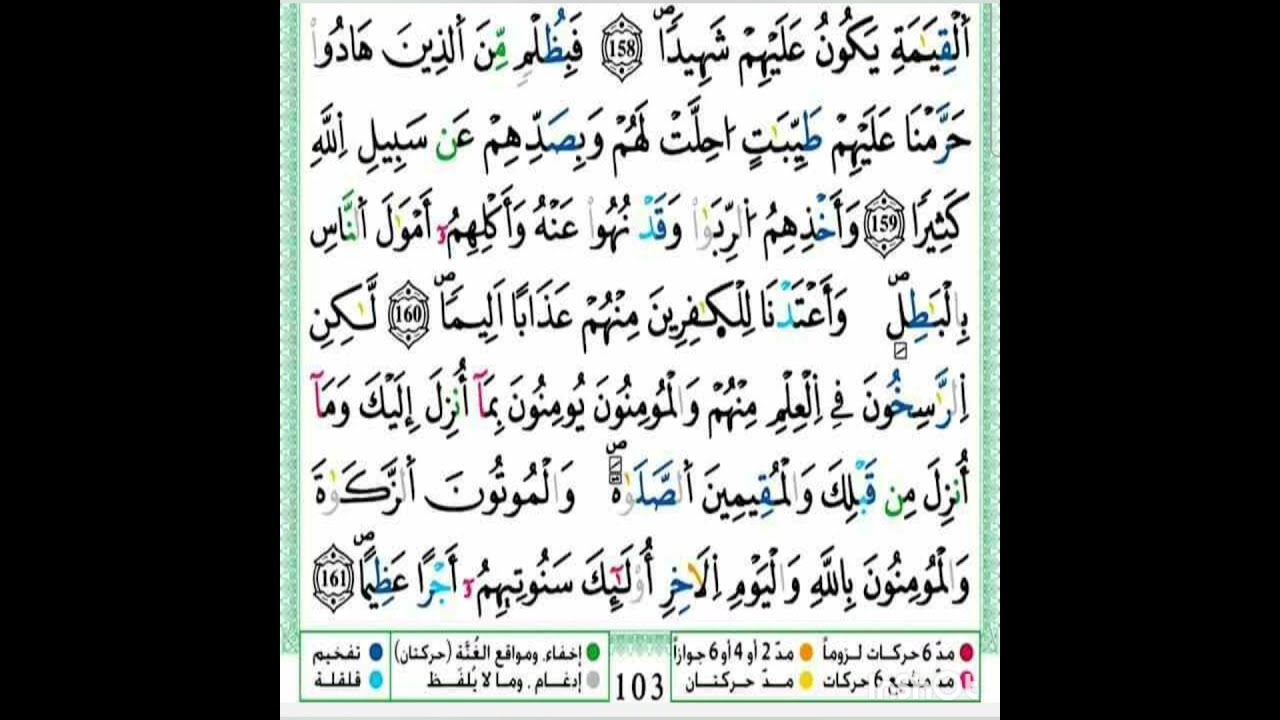 اَ۬لْقِيَٰمَةِ يَكُونُ عَلَيْهِمْ شَهِيداٗۖ 158 فَبِظُلْمٖ مِّنَ اَ۬لذِينَ هَادُواْ
حَرَّمْنَا عَلَيْهِمْ طَيِّبَٰتٍ ا۟حِلَّتْ لَهُمْ وَبِصَدِّهِمْ عَن سَبِيلِ اِ۬للَّهِ
كَثِيراٗ 159 وَأَخْذِهِمُ اُ۬لرِّبَوٰاْ وَقَدْ نُهُواْ عَنْهُ وَأَكْلِهِمُۥٓ أَمْوَٰلَ اَ۬لنَّاسِ
بِالْبَٰطِلِۖ وَأَعْتَدْنَا لِلْكَٰفِرِينَ مِنْهُمْ عَذَاباً اَلِيماٗۖ 160 لَّٰكِنِ
اِ۬لرَّٰسِخُونَ فِے اِ۬لْعِلْمِ مِنْهُمْ وَالْمُومِنُونَ يُومِنُونَ بِمَآ أُنزِلَ إِلَيْكَ وَمَآ
أُنزِلَ مِن قَبْلِكَ وَالْمُقِيمِينَ اَ۬لصَّلَوٰةَۖ وَالْمُوتُونَ اَ۬لزَّكَوٰةَ
وَالْمُومِنُونَ بِاللَّهِ وَالْيَوْمِ اِ۬لَاخِرِ أُوْلَٰٓئِكَ سَنُوتِيهِمُۥٓ أَجْراً عَظِيماًۖ 161
مدّ 6 حركات لزوماً مدّ 2 أو 4 أو 6 جوازاً إخفاء، ومواقع الغُنَّة (حركتان) تفخيم
مدّ مشبع 6 حركات مدّ حركتان 103 إدغام، وما لا يُلفَظ قلقلة